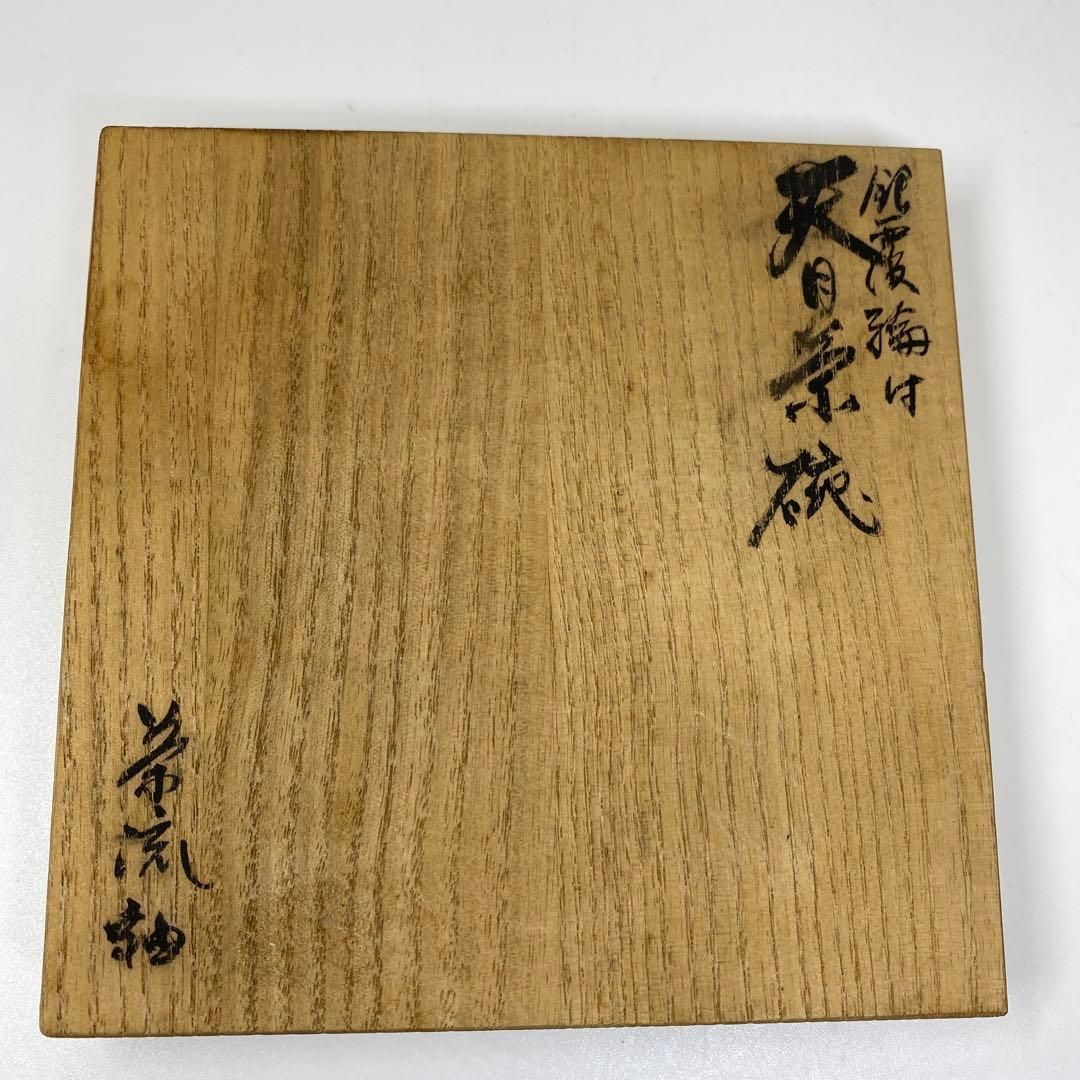 銀覆輪付
天目茶碗
流